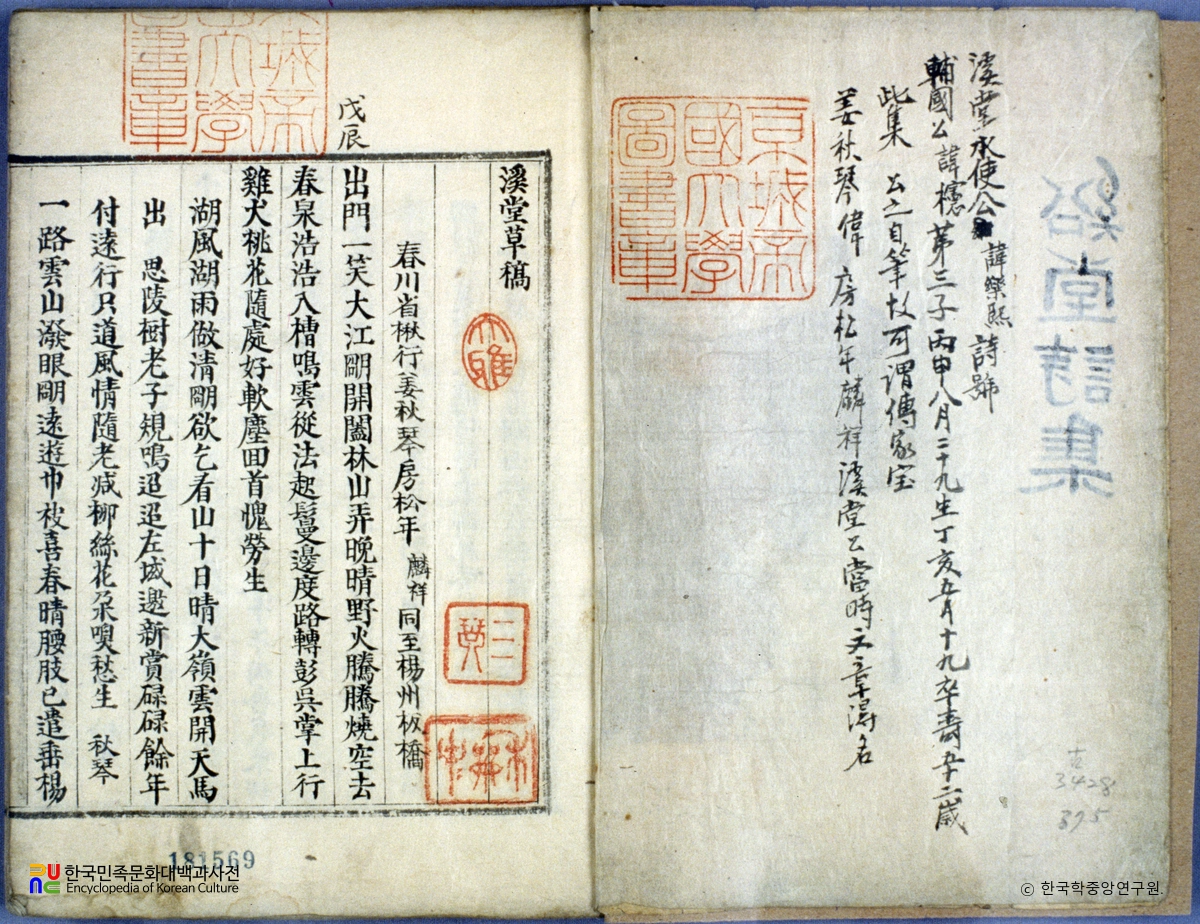 溪堂詩集
溪堂水使公諱樂熙 詩號
輔國公諱檍第三子丙申八月二十九生丁亥五月十九卒壽五十二歲
此集 公之自筆故可謂傳家宝
姜秋琴偉 房松年麟祥溪堂公當時文章得名
京城帝
國大學
圖書章
古
3428
395
戊辰
京城帝
國大學
圖書章
溪堂草稿
春川省楸行姜秋琴房松年麟祥同至楊州板橋
出門一笑大江朙開闔林山弄晩晴野火騰騰燒空去
春泉浩浩入槽鳴雲從法起鬘邊度路轉彭吳掌上行
雞犬桃花隨處好軟塵回首愧勞生
湖風湖雨做清朙欲乞看山十日晴大嶺雲開天馬
出 思陵樹老子規鳴迢迢左海邀新賞碌碌餘年
付遠行只道風情隨老减柳絲花朶嗅愁生 秋琴
一路雲山潑眼朙遠遊巾被喜春晴腰肢已遣垂楊
181569
한국민족문화대백과사전
Encyclopedia of Korean Culture
© 한국학중앙연구원